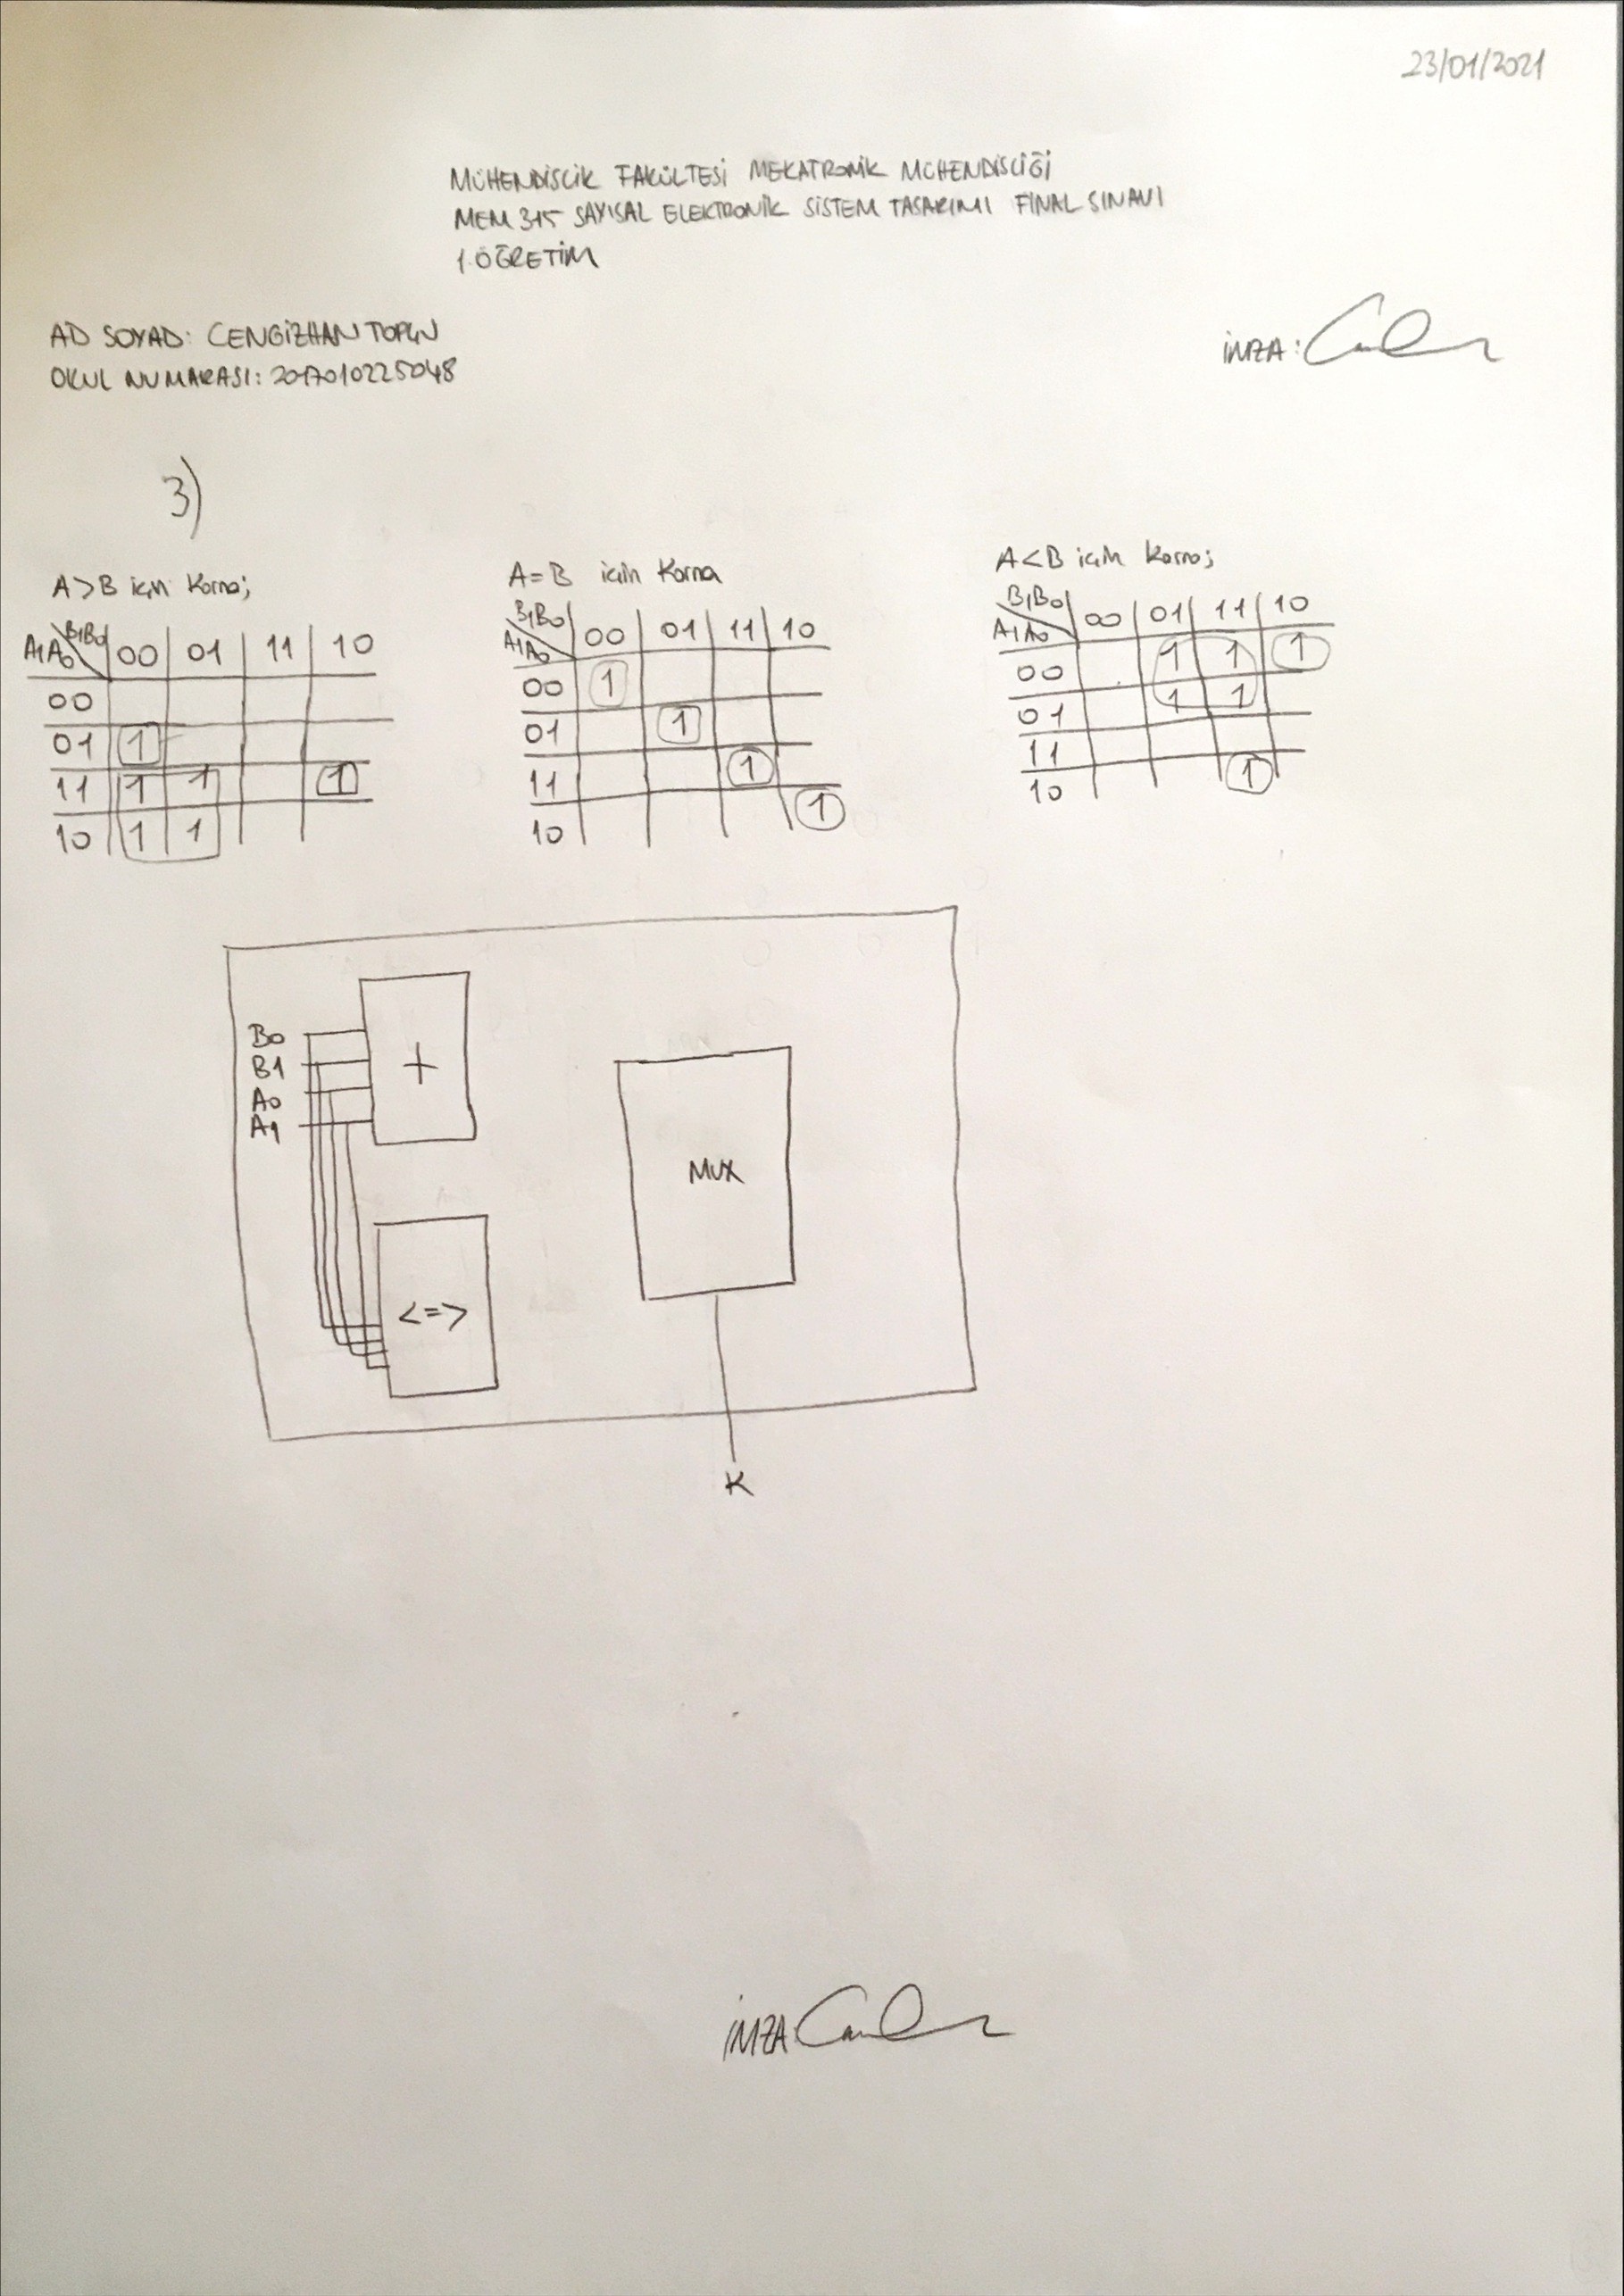 23/01/2021
MÜHENDİSLİK FAKÜLTESİ MEKATRONİK MÜHENDİSLİĞİ
MEM 315 SAYISAL ELEKTRONİK SİSTEM TASARIMI FINAL SINAVI
1.ÖĞRETİM
AD SOYAD: CENGİZHAN
OKUL NUMARASI: 2017010225048
İMZA:
3)
A>B için Karno;
B1B0
A1A0 00 01 11 10
00
01 1
11 1 1 1
10 1 1
A=B için Karna
B1B0
A1A0 00 01 11 10
00 1
01 1
11 1
10 1
A<B için Karno;
B1B0
A1A0 00 01 11 10
00 1 1 1
01 1 1
11
10 1
B0
B1
A0
A1
+
MUX
<=>
K
İMZA